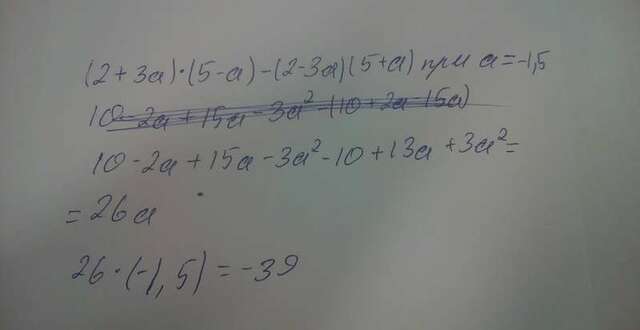 (2+3a)·(5-a)-(2-3a)(5+a) при a=-1,5
10-2a+15a-3a²-(10+2a-15a)
10-2a+15a-3a²-10+13a+3a²=
=26a
26·(-1,5)=-39